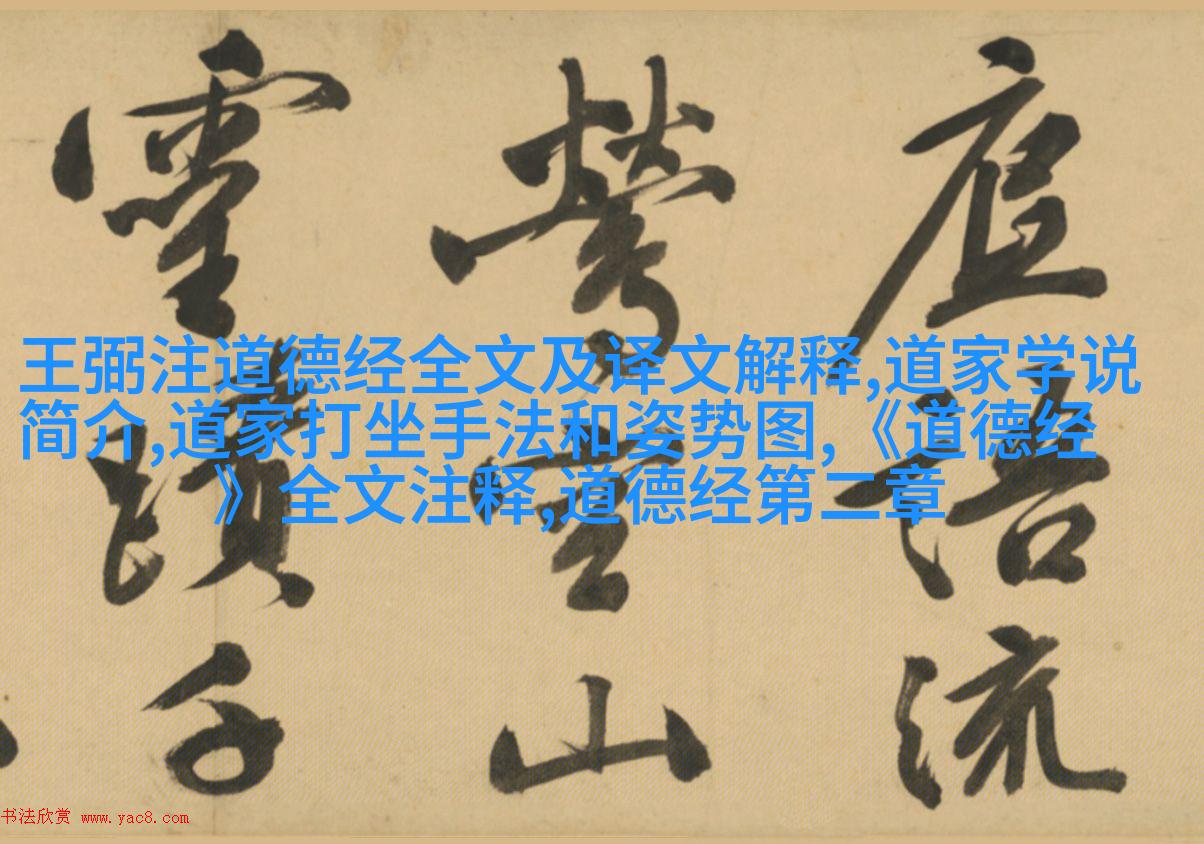 王弼注道德经全文及译文解释,道家学说
简介,道家打坐手法和姿势图,《道德经
》全文注释,道德经第二章
語流
空山
蹟千
书法欣赏 www.yac8.com